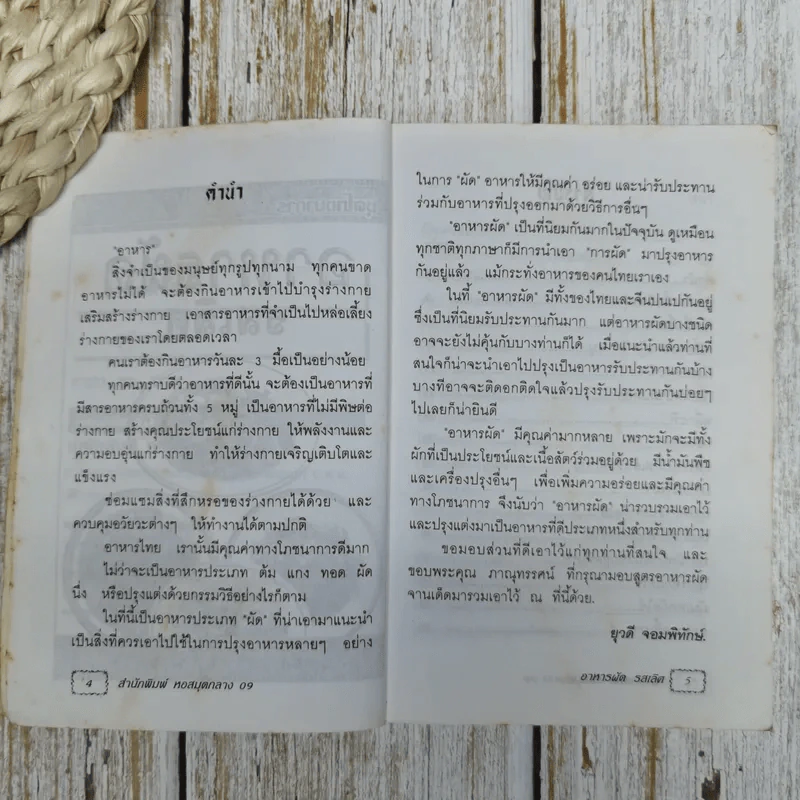 คำนำ
"อาหาร"
สิ่งจำเป็นของมนุษย์ทุกรูปทุกนาม ทุกคนขาด
อาหารไม่ได้ จะต้องกินอาหารเข้าไปบำรุงร่างกาย
เสริมสร้างร่างกาย เอาสารอาหารที่จำเป็นไปหล่อเลี้ยง
ร่างกายของเราโดยตลอดเวลา
คนเราต้องกินอาหารวันละ 3 มื้อเป็นอย่างน้อย
ทุกคนทราบดีว่าอาหารที่ดีนั้น จะต้องเป็นอาหารที่
มีสารอาหารครบถ้วนทั้ง 5 หมู่ เป็นอาหารที่ไม่มีพิษต่อ
ร่างกาย สร้างคุณประโยชน์แก่ร่างกาย ให้พลังงานและ
ความอบอุ่นแก่ร่างกาย ทำให้ร่างกายเจริญเติบโตและ
แข็งแรง
ซ่อมแซมสิ่งที่สึกหรอของร่างกายได้ด้วย และ
ควบคุมอวัยวะต่างๆ ให้ทำงานได้ตามปกติ
อาหารไทย เรานั้นมีคุณค่าทางโภชนาการดีมาก
ไม่ว่าจะเป็นอาหารประเภท ต้ม แกง ทอด ผัด
นึ่ง หรือปรุงแต่งด้วยกรรมวิธีอย่างไรก็ตาม
ในที่นี้เป็นอาหารประเภท "ผัด" ที่นำเอามาแนะนำ
เป็นสิ่งที่ควรเอาไปใช้ในการปรุงอาหารหลายๆ อย่าง
4 สำนักพิมพ์ หอสมุดกลาง 09
ในการ "ผัด" อาหารให้มีคุณค่า อร่อย และน่ารับประทาน
ร่วมกับอาหารที่ปรุงออกมาด้วยวิธีการอื่นๆ
"อาหารผัด" เป็นที่นิยมกันมากในปัจจุบัน ดูเหมือน
ทุกชาติทุกภาษาก็มีการนำเอา "การผัด" มาปรุงอาหาร
กันอยู่แล้ว แม้กระทั่งอาหารของคนไทยเราเอง
ในที่นี้ "อาหารผัด" มีทั้งของไทยและจีนปนเปกันอยู่
ซึ่งเป็นที่นิยมรับประทานกันมาก แต่อาหารผัดบางชนิด
อาจจะยังไม่คุ้นกับบางท่านก็ได้ เมื่อแนะนำแล้วท่านที่
สนใจก็น่าจะนำเอาไปปรุงเป็นอาหารรับประทานกันบ้าง
บางทีอาจจะติดอกติดใจแล้วปรุงรับประทานกันบ่อยๆ
ไปเลยก็น่ายินดี
"อาหารผัด" มีคุณค่ามากหลาย เพราะมักจะมีทั้ง
ผักที่เป็นประโยชน์และเนื้อสัตว์ร่วมอยู่ด้วย มีน้ำมันพืช
และเครื่องปรุงอื่นๆ เพื่อเพิ่มความอร่อยและมีคุณค่า
ทางโภชนาการ จึงนับว่า "อาหารผัด" น่ารวบรวมเอาไว้
และปรุงแต่งมาเป็นอาหารที่ดีประเภทหนึ่งสำหรับทุกท่าน
ขอมอบส่วนที่ดีเอาไว้แก่ทุกท่านที่สนใจ และ
ขอบพระคุณ ภาณุทรรศน์ ที่กรุณามอบสูตรอาหารผัด
จานเด็ดมารวมเอาไว้ ณ ที่นี้ด้วย.
ยุวดี จอมพิทักษ์.
อาหารผัด รสเลิศ 5